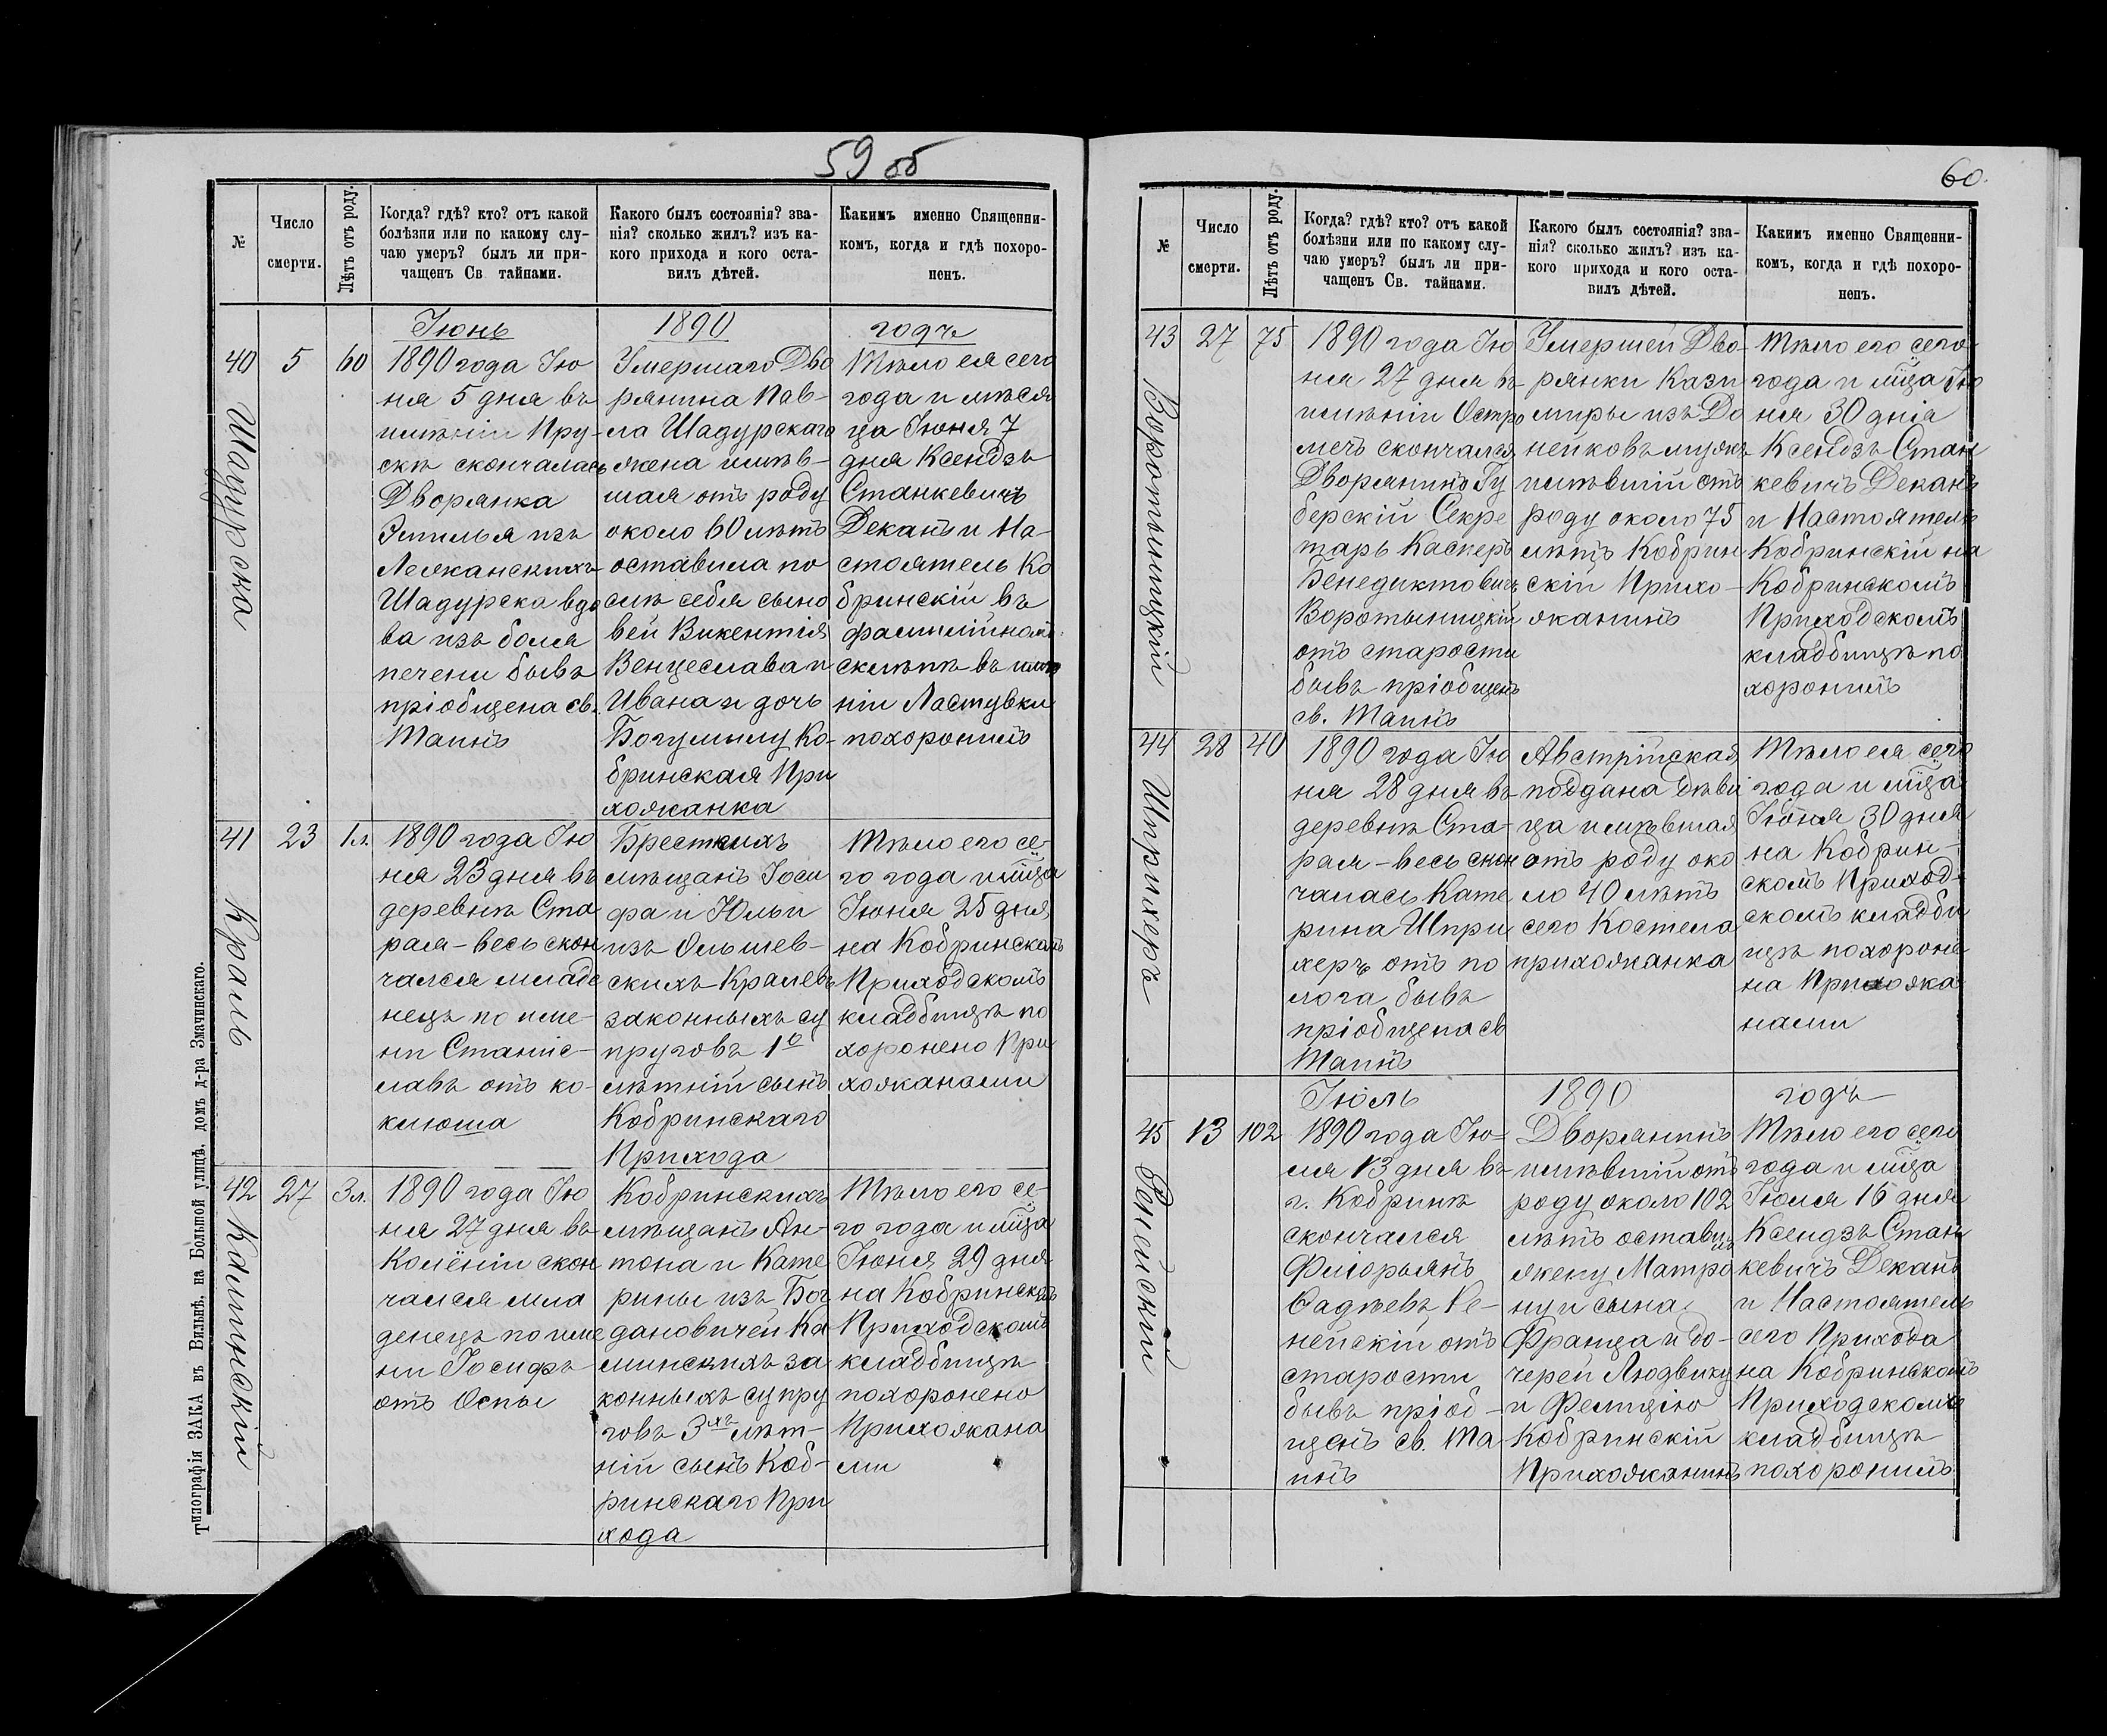 59 об
№
Число
смерти.
Лѣтъ отъ роду.
Когда? гдѣ? кто? отъ какой
болѣзни или по какому слу-
чаю умеръ? былъ ли при-
чащенъ Св. тайнами.
Какого былъ состоянія? зва-
нія? сколько жилъ? изъ ка-
кого прихода и кого оста-
вилъ дѣтей.
Какимъ именно Священни-
комъ, когда и гдѣ похоро-
ненъ.
Іюнь
1890
годъ
40
5
60
Шадурска
1890 года Ію
ня 5 дня въ
имѣніи Пру-
скѣ скончалась
Дворянка
Эмилья изъ
Леяканскихъ
Шадурска вдо
ва изъ боля
печени бывъ
пріобщена св.
Таинъ
Умершаго Дво
рянина Пав-
ла Шадурскаго
жена имѣв-
шая отъ роду
около 60 лѣтъ
оставила по
слѣ себя сыно
вей Викентія
Венцеслава и
Ивана и дочь
Богумилу Ко-
бринская При
хожанка
Тѣло ея сего
года и мѣся
ца Іюня 7
дня Ксендзъ
Станкевичъ
Деканъ и На-
стоятель Ко
бринскій въ
фамилійномъ
склѣпѣ въ имѣ
ніи Ластувки
похоронилъ
41
23
1 л.
Кроаль
1890 года Ію
ня 23 дня въ
деревнѣ Ста
рая-весь скон
чался младе
нецъ по име-
ни Станис-
лавъ отъ ко-
клюша
Бресткихъ
мѣщанъ Іоси
фа и Юльи
изъ Ольшев-
скихъ Кралевъ
законныхъ су
пруговъ 1о
лѣтній сынъ
Кобринскаго
Прихода
Тѣло его се-
го года и мца
Іюня 25 дня
на Кобринскомъ
Приходскомъ
кладбищѣ по
хоронено При
хожанами
42
27
3 л.
Каминскій
1890 года Ію
ня 27 дня въ
Колёніи скон
чался мла
денецъ по име
ни Іосифъ
отъ Оспы
Кобринскихъ
мѣщанъ Ан-
тона и Кате
рины изъ Бог
дановичей Ка
минскихъ за
конныхъ супру
говъ 3хъ лѣт-
ній сынъ Коб-
ринскаго При
хода
Тѣло его се-
го года и мца
Іюня 29 дня
на Кобринскомъ
Приходскомъ
кладбищѣ
похоронено
Прихожана
ми
Типографія ЗАКА въ Вильнѣ, на Большой улицѣ, домъ д-ра Змачинскаго.
60.
№
Число
смерти.
Лѣтъ отъ роду.
Когда? гдѣ? кто? отъ какой
болѣзни или по какому слу-
чаю умеръ? былъ ли при-
чащенъ Св. тайнами.
Какого былъ состоянія? зва-
нія? сколько жилъ? изъ ка-
кого прихода и кого оста-
вилъ дѣтей.
Какимъ именно Священни-
комъ, когда и гдѣ похоро-
ненъ.
43
27
75
Воротыницкій
1890 года Ію
ня 27 дня въ
имѣніи Остро
мечъ скончался
Дворянинъ Гу
берскій Секре
тарь Касперъ
Бенедиктовичъ
Воротыницкій
отъ старости
бывъ пріобщенъ
св. Таинъ
Умершей Дво-
рянки Кази
миры изъ До
нейковъ мужъ
имѣвшій отъ
роду около 75
лѣтъ Кобрин
скій Прихо-
жанинъ
Тѣло его сего
года и мца Ію
ня 30 дня
Ксендзъ Стан
кевичъ Деканъ
и Настоятель
Кобринскій на
Кобринскомъ
Приходскомъ
кладбищѣ по
хоронилъ
44
28
40
Шприхеръ
1890 года Ію
ня 28 дня въ
деревнѣ Ста-
рая-весь скон
чалась Кате
рина Шпри
херъ отъ по
лога, бывъ
пріобщена св
Таинъ
Австрійская
поддана дѣви
ца имѣвшая
отъ роду око
ло 40 лѣтъ
сего Костела
прихожанка
Тѣло ея сего
года и мца
Іюня 30 дня
на Кобрин-
скомъ Приход-
скомъ кладби
щѣ похороне
на Прихожа
нами
Іюль
1890
годъ
45
13
102
Ренейский
1890 года Ію-
ля 13 дня въ
г. Кобринѣ
скончался
Флоръянъ
Фадѣевъ Ре-
нейскій отъ
старости
бывъ пріоб-
щенъ св. Та-
инъ
Дворянинъ
имѣвшій отъ
роду около 102
лѣтъ оставилъ
жену Матро
ну и сына
Франца и до-
черей Людвику
и Фелицію
Кобринскій
Прихожанинъ
Тѣло его сего
года и мца
Іюля 16 дня
Ксендзъ Стан
кевичъ Деканъ
и Настоятель
сего Прихода
на Кобринскомъ
Приходскомъ
кладбищѣ
похоронилъ